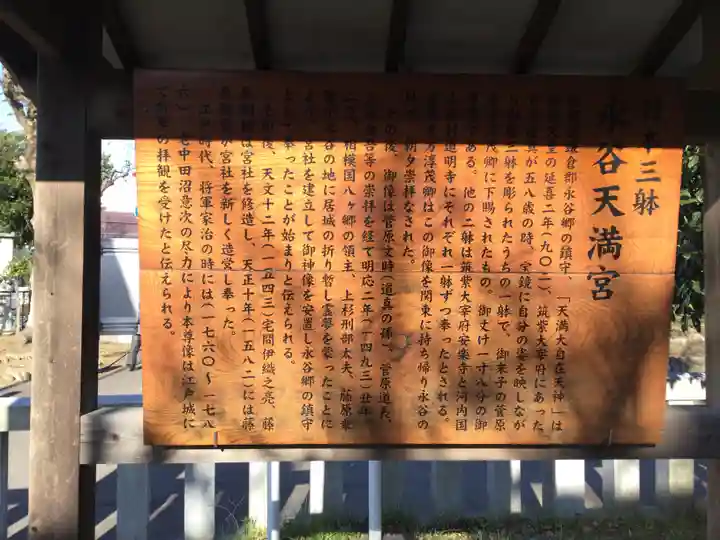 三躰
永谷天満宮
鎌倉郡永谷郷の鎮守、「天満大自在天神」は
の延喜二年(九〇二)、筑紫大宰府にあった
真が五八歳の時、宝鏡に自分の姿を映しなが
三躰を彫られたうちの一躰で、御末子の菅原
茂卿に下賜されたもの。御丈け一寸八分の御
である。他の二躰は筑紫大宰府安楽寺と河内国
道明寺にそれぞれ一躰ずつ奉ったとされる。
淳茂卿はこの御像を関東に持ち帰り永谷の
朝夕崇拝なされた。
の後、御像は菅原文時(道真の孫)、菅原道長、
等の崇拝を経て明応二年(一四九三)丑年
相模国八ヶ郷の領主、上杉刑部太夫、藤原乗
永谷の地に居城の折り暫し霊夢を蒙ったことに
宮社を建立して御神像を安置し永谷郷の鎮守
奉ったことが始まりと伝えられる。
後、天文十二年(一五四三)宅間伊織之亮、藤
は宮社を修造し、天正十年(一五八二)には藤
が宮社を新しく造営し奉った。
江戸時代、将軍家治の時には(一七六〇〜一七八
六)老中田沼意次の尽力により本尊像は江戸城に
て将軍の拝観を受けたと伝えられる。